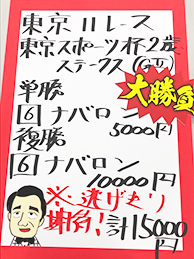 東京11レース
東京スポーツ杯2歳
ステークス(GⅡ)
単勝
6 ナバロン
5000円
複勝
6 ナバロン
10000円
※逃げ切り
期待!
計15000円
大勝負